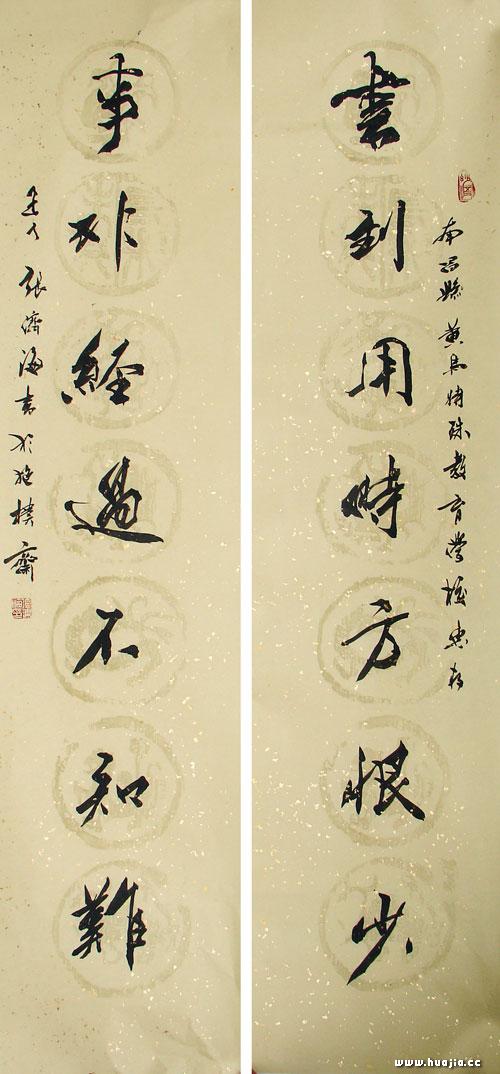 南昌縣黃馬特殊教育學校惠存
書到用時方恨少
事非經過不知難
張濟海書於樸齋
www.huajia.cc